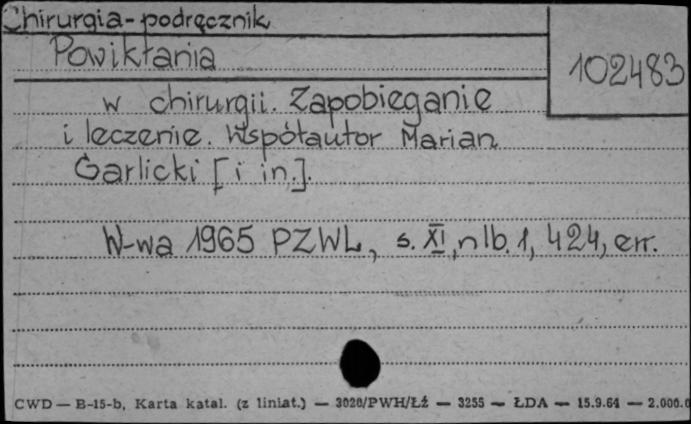 Chirurgia-podręcznik
Powikłania
102483
w chirurgii. Zapobieganie
i leczenie. Współautor Marian
Garlicki [i in.].
W-wa 1965 PZWL, s. XI, nlb. 1, 424, err.
CWD — B-15-b, Karta katal. (z liniat.) — 3020/PWH/Łź — 3255 — ŁDA — 15.9.64 — 2.000.0